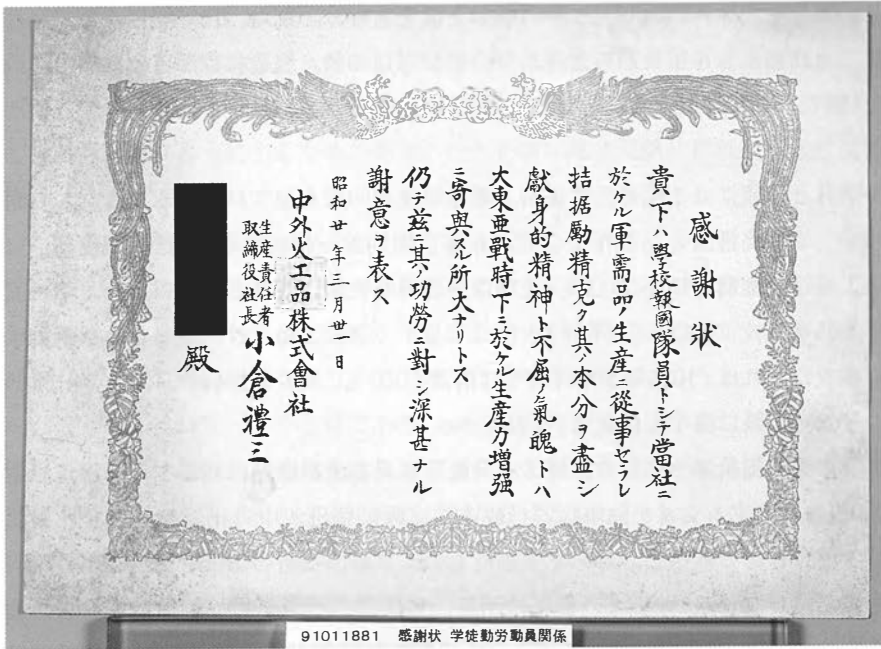 感謝状
貴下ハ學校報國隊員トシテ當社ニ
於ケル軍需品ノ生産ニ從事セラレ
拮据勵精克ク其ノ本分ヲ盡シ
獻身的精神ト不屈ノ氣魄トハ
大東亜戰時下ニ於ケル生産力増强
ニ寄與スル所大ナリトス
仍テ茲其ノ功勞ニ對シ深甚ナル
謝意ヲ表ス
昭和廿年三月廿一日
中外火工品株式會社
生産責任者
取締役社長 小倉禮三
殿
91011881 感謝状 学徒勤労動員関係